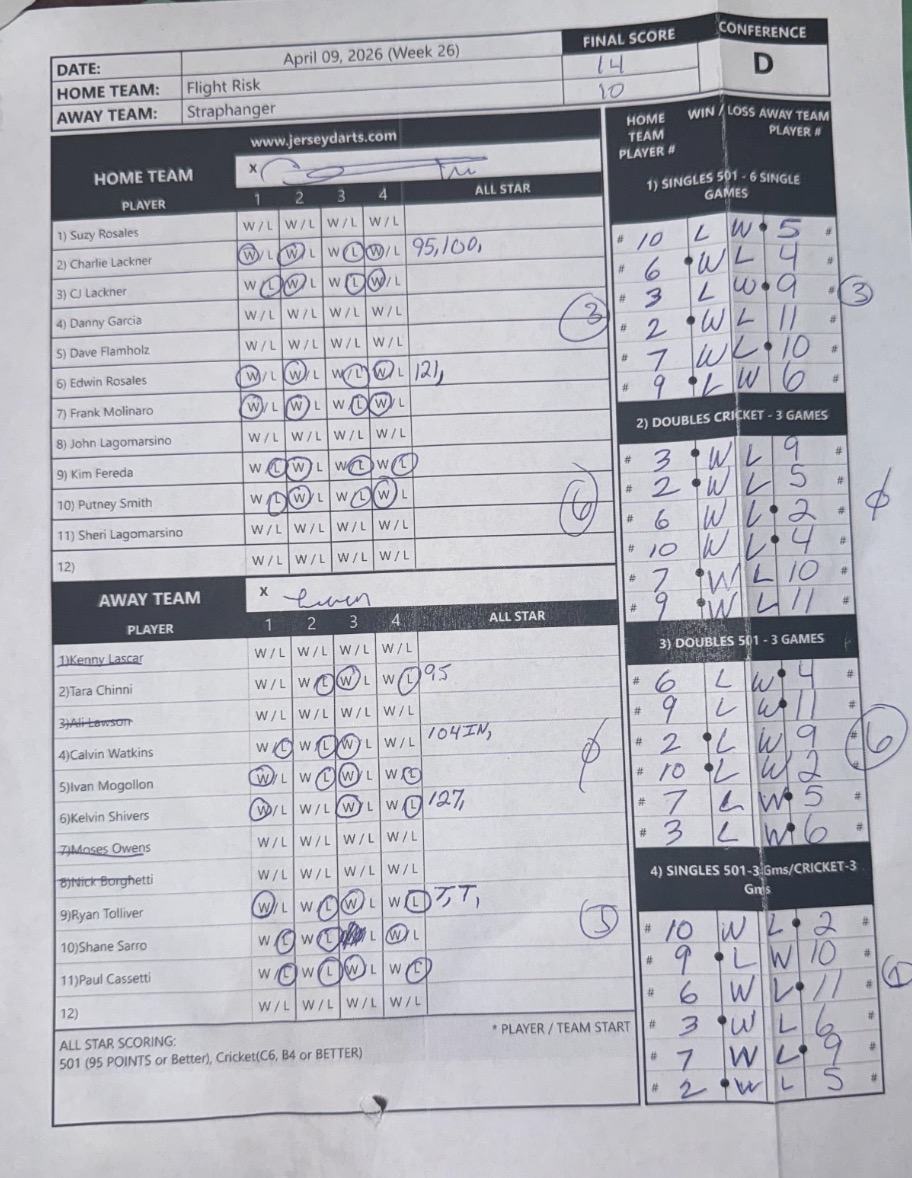 DATE: April 09, 2026 (Week 26) FINAL SCORE CONFERENCE
HOME TEAM: Flight Risk 14 D
AWAY TEAM: Straphanger 10
www.jerseydarts.com
HOME TEAM X
PLAYER 1 2 3 4 ALL STAR
1) Suzy Rosales W / L W / L W / L W / L
2) Charlie Lackner W / L W / L W / L W / L 95,100,
3) CJ Lackner W / L W / L W / L W / L
4) Danny Garcia W / L W / L W / L W / L 3
5) Dave Flamholz W / L W / L W / L W / L
6) Edwin Rosales W / L W / L W / L W / L 121,
7) Frank Molinaro W / L W / L W / L W / L
8) John Lagomarsino W / L W / L W / L W / L
9) Kim Fereda W / L W / L W / L W / L
10) Putney Smith W / L W / L W / L W / L 6
11) Sheri Lagomarsino W / L W / L W / L W / L
12) W / L W / L W / L W / L
AWAY TEAM X
PLAYER 1 2 3 4 ALL STAR
1)Kenny Lascar W / L W / L W / L W / L
2)Tara Chinni W / L W / L W / L W / L 95
3)Ali Lawson W / L W / L W / L W / L
4)Calvin Watkins W / L W / L W / L W / L 104IN,
5)Ivan Mogollon W / L W / L W / L W / L ϕ
6)Kelvin Shivers W / L W / L W / L W / L 127,
7)Moses Owens W / L W / L W / L W / L
8)Nick Borghetti W / L W / L W / L W / L
9)Ryan Tolliver W / L W / L W / L W / L T, T,
10)Shane Sarro W / L W / L L W / L
11)Paul Cassetti W / L W / L W / L W / L
12) W / L W / L W / L W / L
ALL STAR SCORING: * PLAYER / TEAM START
501 (95 POINTS or Better), Cricket(C6, B4 or BETTER)
HOME TEAM PLAYER # WIN / LOSS AWAY TEAM PLAYER #
1) SINGLES 501 - 6 SINGLE
GAMES
# 10 L W 5 #
# 6 W L 4 #
# 3 L W 9 # 3
# 2 W L 11 #
# 7 W L 10 #
# 9 L W 6 #
2) DOUBLES CRICKET - 3 GAMES
# 3 W L 9 #
# 2 W L 5 #
# 6 W L 2 # ϕ
# 10 W L 4 #
# 7 W L 10 #
# 9 W L 11 #
3) DOUBLES 501 - 3 GAMES
# 6 L W 4 #
# 9 L W 11 #
# 2 L W 9 # 6
# 10 L W 2 #
# 7 L W 5 #
# 3 L W 6 #
4) SINGLES 501-3 Gms/CRICKET-3
Gms
# 10 W L 2 #
# 9 L W 10 #
# 6 W L 11 # 1
# 3 W L 6 #
# 7 W L 9 #
# 2 W L 5 #